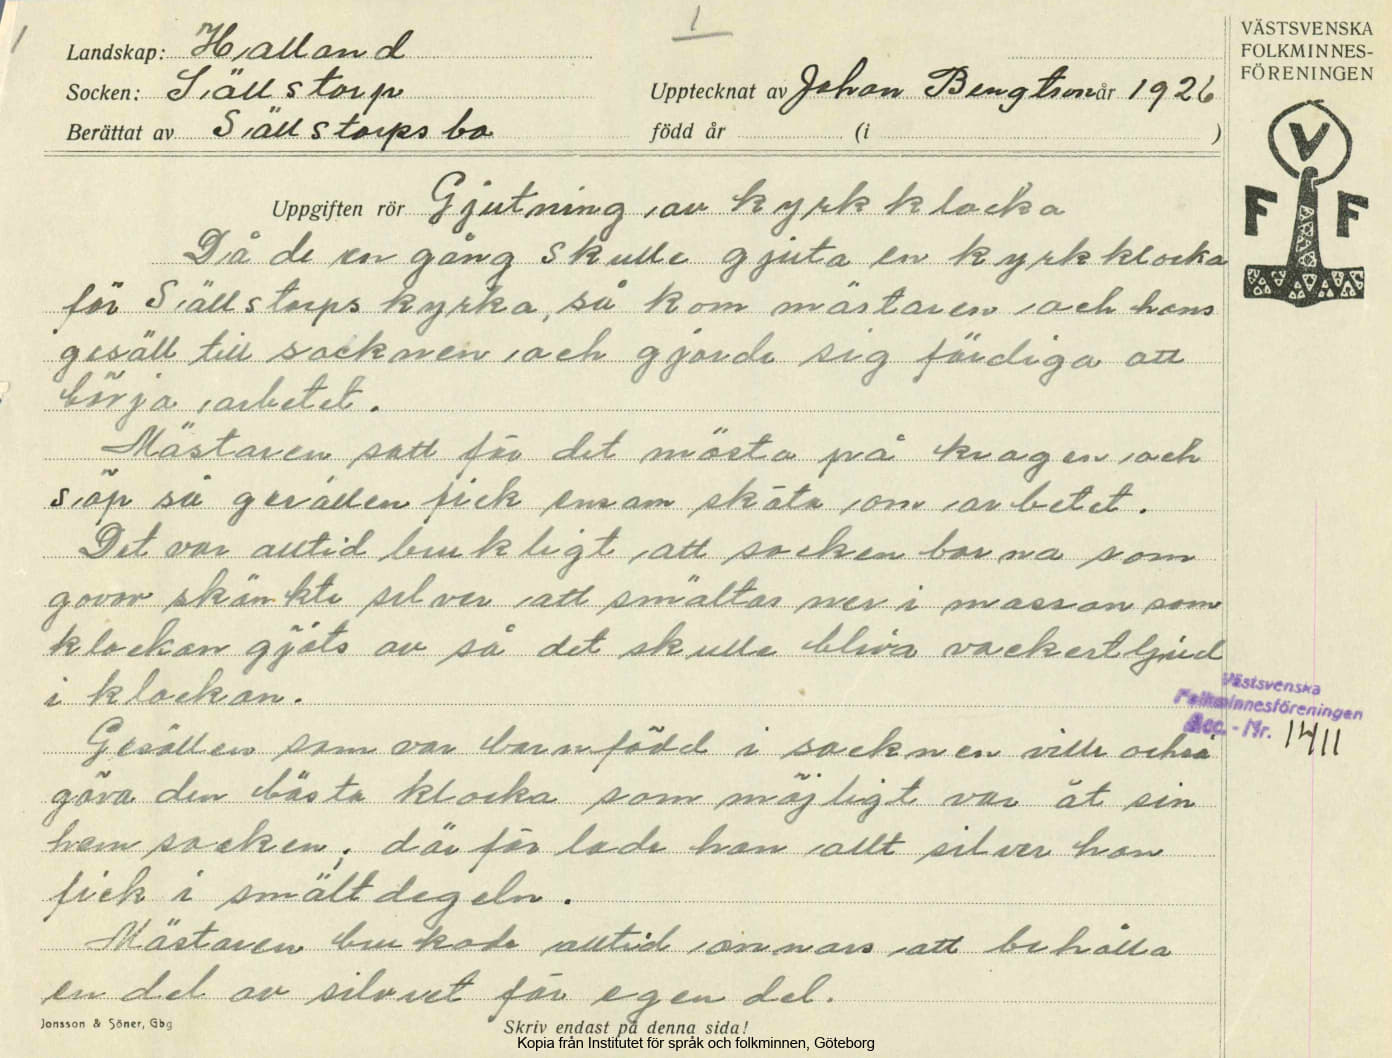 1
1
Landskap: Halland
Socken: Sällstorp
Upptecknat av Johan Bengtson år 1926
Berättat av Sällstorpsbo
född år (i )
VÄSTSVENSKA
FOLKMINNES-
FÖRENINGEN
V
F F
Uppgiften rör Gjutning av kyrkklocka
Då de en gång skulle gjuta en kyrkklocka
för Sällstorps kyrka, så kom mästaren och hans
gesäll till socknen och gjorde sig färdiga att
börja arbetet.
Mästaren satt för det mästa på krogen och
söp så gesällen fick ensam sköta om arbetet.
Det var alltid brukligt att sockenborna som
gåvor skänkte silver att smältas ner i massan som
klockan gjöts av så det skulle bliva vackert ljud
i klockan.
Gesällen som var barnfödd i socknen ville också
göra den bästa klocka som möjligt var åt sin
hemsocken; därför lade han allt silver han
fick i smältdegeln.
Mästaren brukade alltid annars att behålla
en del av silvret för egen del.
Västsvenska
Folkminnesföreningen
Acc. - Nr. 1411
Jonsson & Söner, Gbg
Skriv endast på denna sida!
Kopia från Institutet för språk och folkminnen, Göteborg